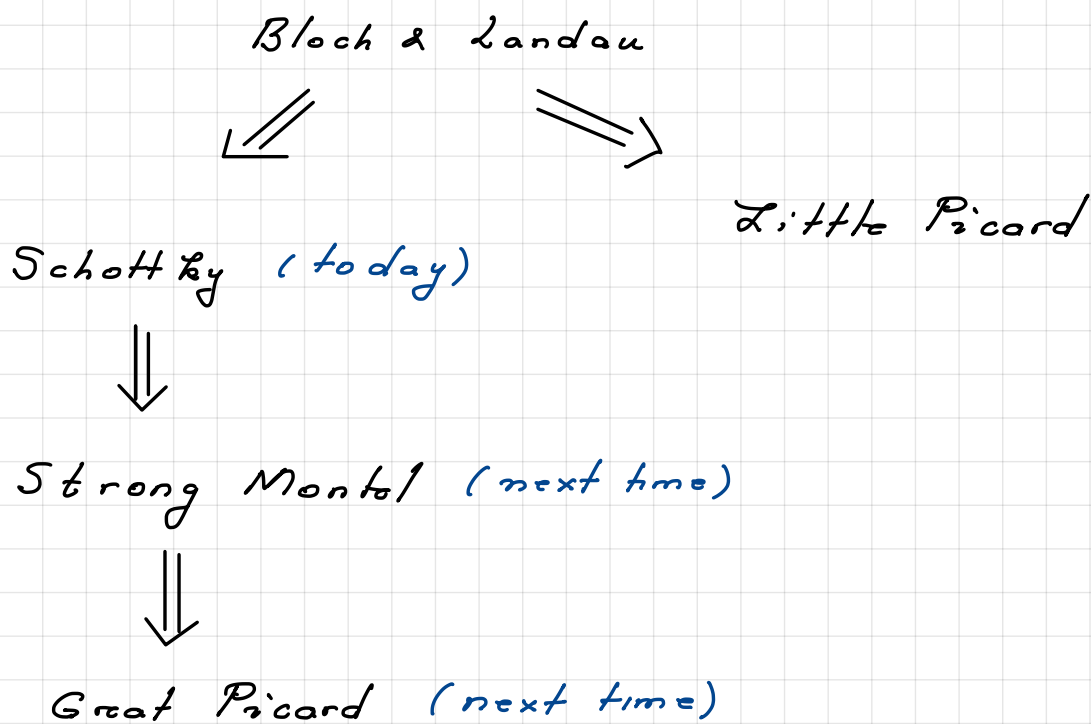 Bloch & Landau
Little Picard
Schottky (today)
Strong Montel (next time)
Great Picard (next time)